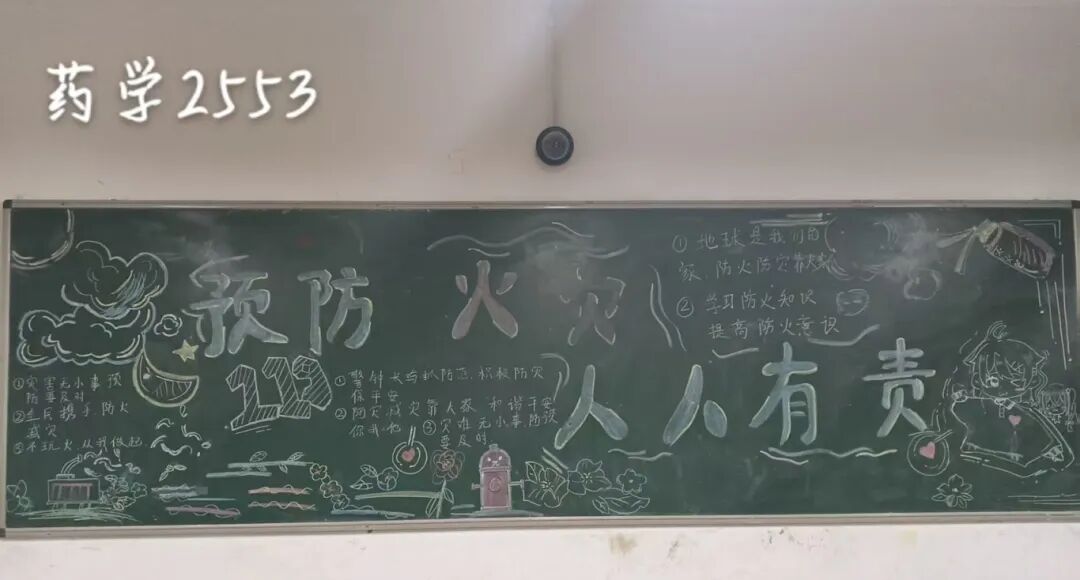 药学2553
预防 火灾
人人有责
119
①灾害无小事预
防要及时
②全民携手防火
减灾
③不玩火从我做起
①警钟长鸣抓防范,积极防灾
保平安
②防灾减灾靠大家,和谐平安
你我他 ③灾难无小事防投
要及时
①地球是我们的
家、防火防灾靠大家
②学习防火知识
提高防火意识